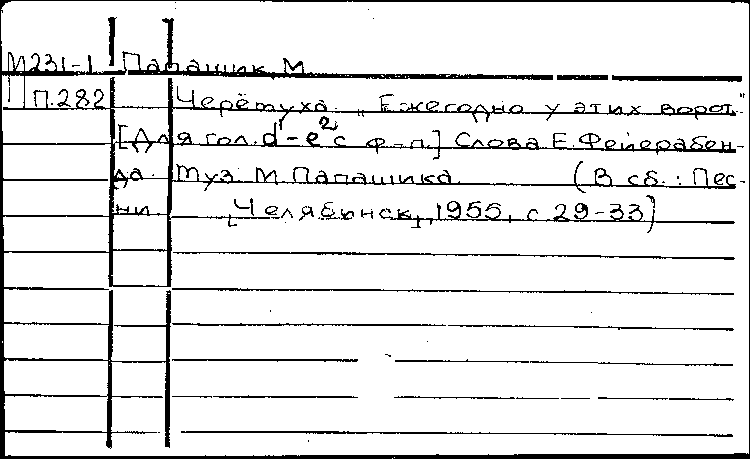 М231-1 Папашик М.
П.282 Черёмуха. „Ежегодно у этих ворот."
[Для гол. d¹-e² с ф-п.] Слова Е. Фейерабен-
да. Муз. М. Папашика. (В сб.: Пес-
ни. [Челябинск], 1955, с 29-33)